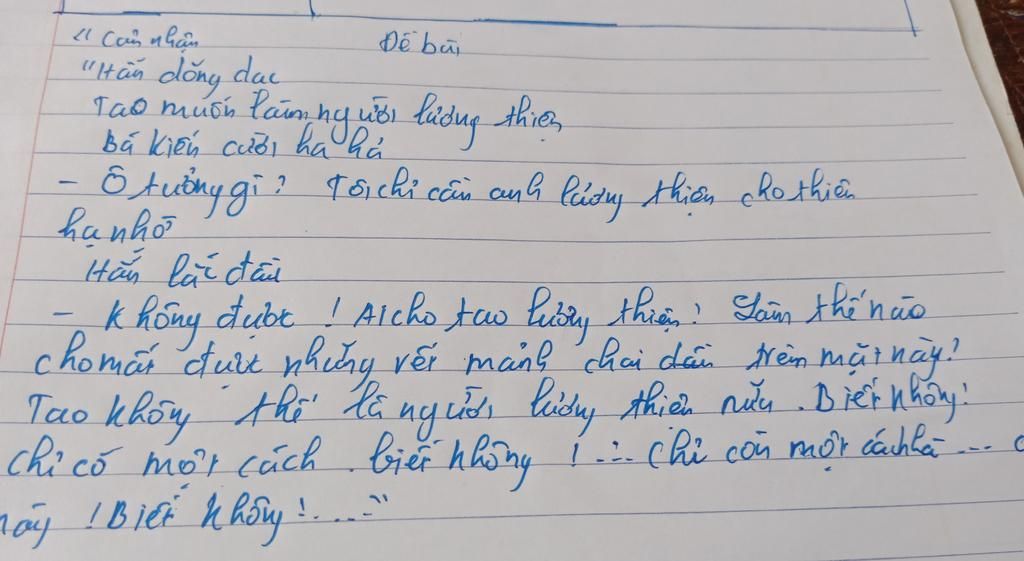 "Cảm nhận Đề bài
"Hắn dõng dạc
Tao muốn làm người lương thiện
Bá Kiến cười ha hả
- Ồ tưởng gì? Tôi chỉ cần anh lương thiện cho thiên
hạ nhờ
Hắn lắc đầu
- Không được! Ai cho tao lương thiện? Làm thế nào
cho mất được những vết mảnh chai trên mặt này?
Tao không thể là người lương thiện nữa. Biết không!
chỉ có một cách. biết không!... chỉ còn một cách là ...
này! Biết không!...."